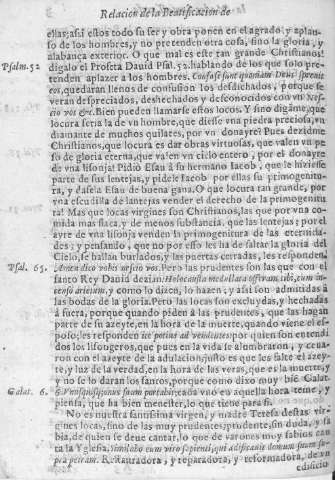 Relacion de la Beatificacion de
ellas; assi estos todo su ser y obra ponen en el agrado y aplau-
so de los hombres, y no pretenden otra cosa, sino la gloria, y
alabança exterior. O que mal es este tan grande Christianos!
Psalm. 52 digalo el Profeta Dauid Psal. 52. hablando de los que solo pre-
tenden aplazer a los hombres. Confusi sunt quoniam Deus spreuit
eos, quedaran llenos de confusion los desdichados, porque se
veran despreciados, deshechados y desconocidos con vn Nes-
cio vos &c. Bien pueden llamarse estos locos. Y sino diganme, que
locura seria la de vn hombre, que diesse vna piedra preciosa, vn
diamante de muchos quilates, por vn donayre? Pues dezidme
Christianos, que locura es dar obras virtuosas, que valen vn pe
so de gloria eterna, que valen vn cielo entero, por el donayre
de vna lisonja? Pidio Esau à su hermano Iacob, que le hiziesse
parte de sus lentejas, y pidele Iacob por ellas su primogenitu-
ra, y dasela Esau de buena gana. O que locura tan grande, por
vna escudilla de lantejas vender el derecho de la primogenitu
ra! Mas que locas virgines son Christianas, las que por vna co-
mida mas flaca, y de menos substancia, que las lentejas, por el
ayre de vna lisonja venden la primogenitura de las eternida-
des; y pensando, que no por esso les ha de faltar la gloria del
Cielo, se hallan burladas, y las puertas cerradas, les responden
Psal. 65. Amen dico vobis nescio vos. Pero las prudentes son las que con el
santo Rey Dauid dezian: Holocausta medullata offeram tibi, cum in-
censo arietum, y como lo dizen, lo hazen, y assi son admitidas à
las bodas de la gloria. Pero las locas son excluydas, y hechadas
à fuera, porque quando piden à las prudentes, que las hagan
parte de su azeyte, en la hora de la muerte, quando viene el es-
poso; les responden ite potius ad vendentes: por quien son entendi
dos los lisongeros, que pues en la vida se alumbraron, y cura-
ron con el azeyte de la adulacion, justo es que les falte el azey-
te, y luz de la verdad, en la hora de las veras, que es la muerte, y
y no se lo daran los santos, porque como dixo muy bien S. Galat.
Galat. 6. 6. Vnusquisque onus suum portabit, cada vno en aquella hora teme, y
piensa, que ha bien menester, lo que tiene para si.
No es nuestra santissima virgen, y madre Teresa destas vir-
gines locas, sino de las muy prudentes; prudente, sin duda, y sa
bia, de quien se deue cantar, lo que de varones muy sabios can
ta la Yglesia. Similabo eum viro sapienti, qui ædificauit domum suam su-
pra petram. Restauradora, y reparadora, y reformadora, de vn
edificio